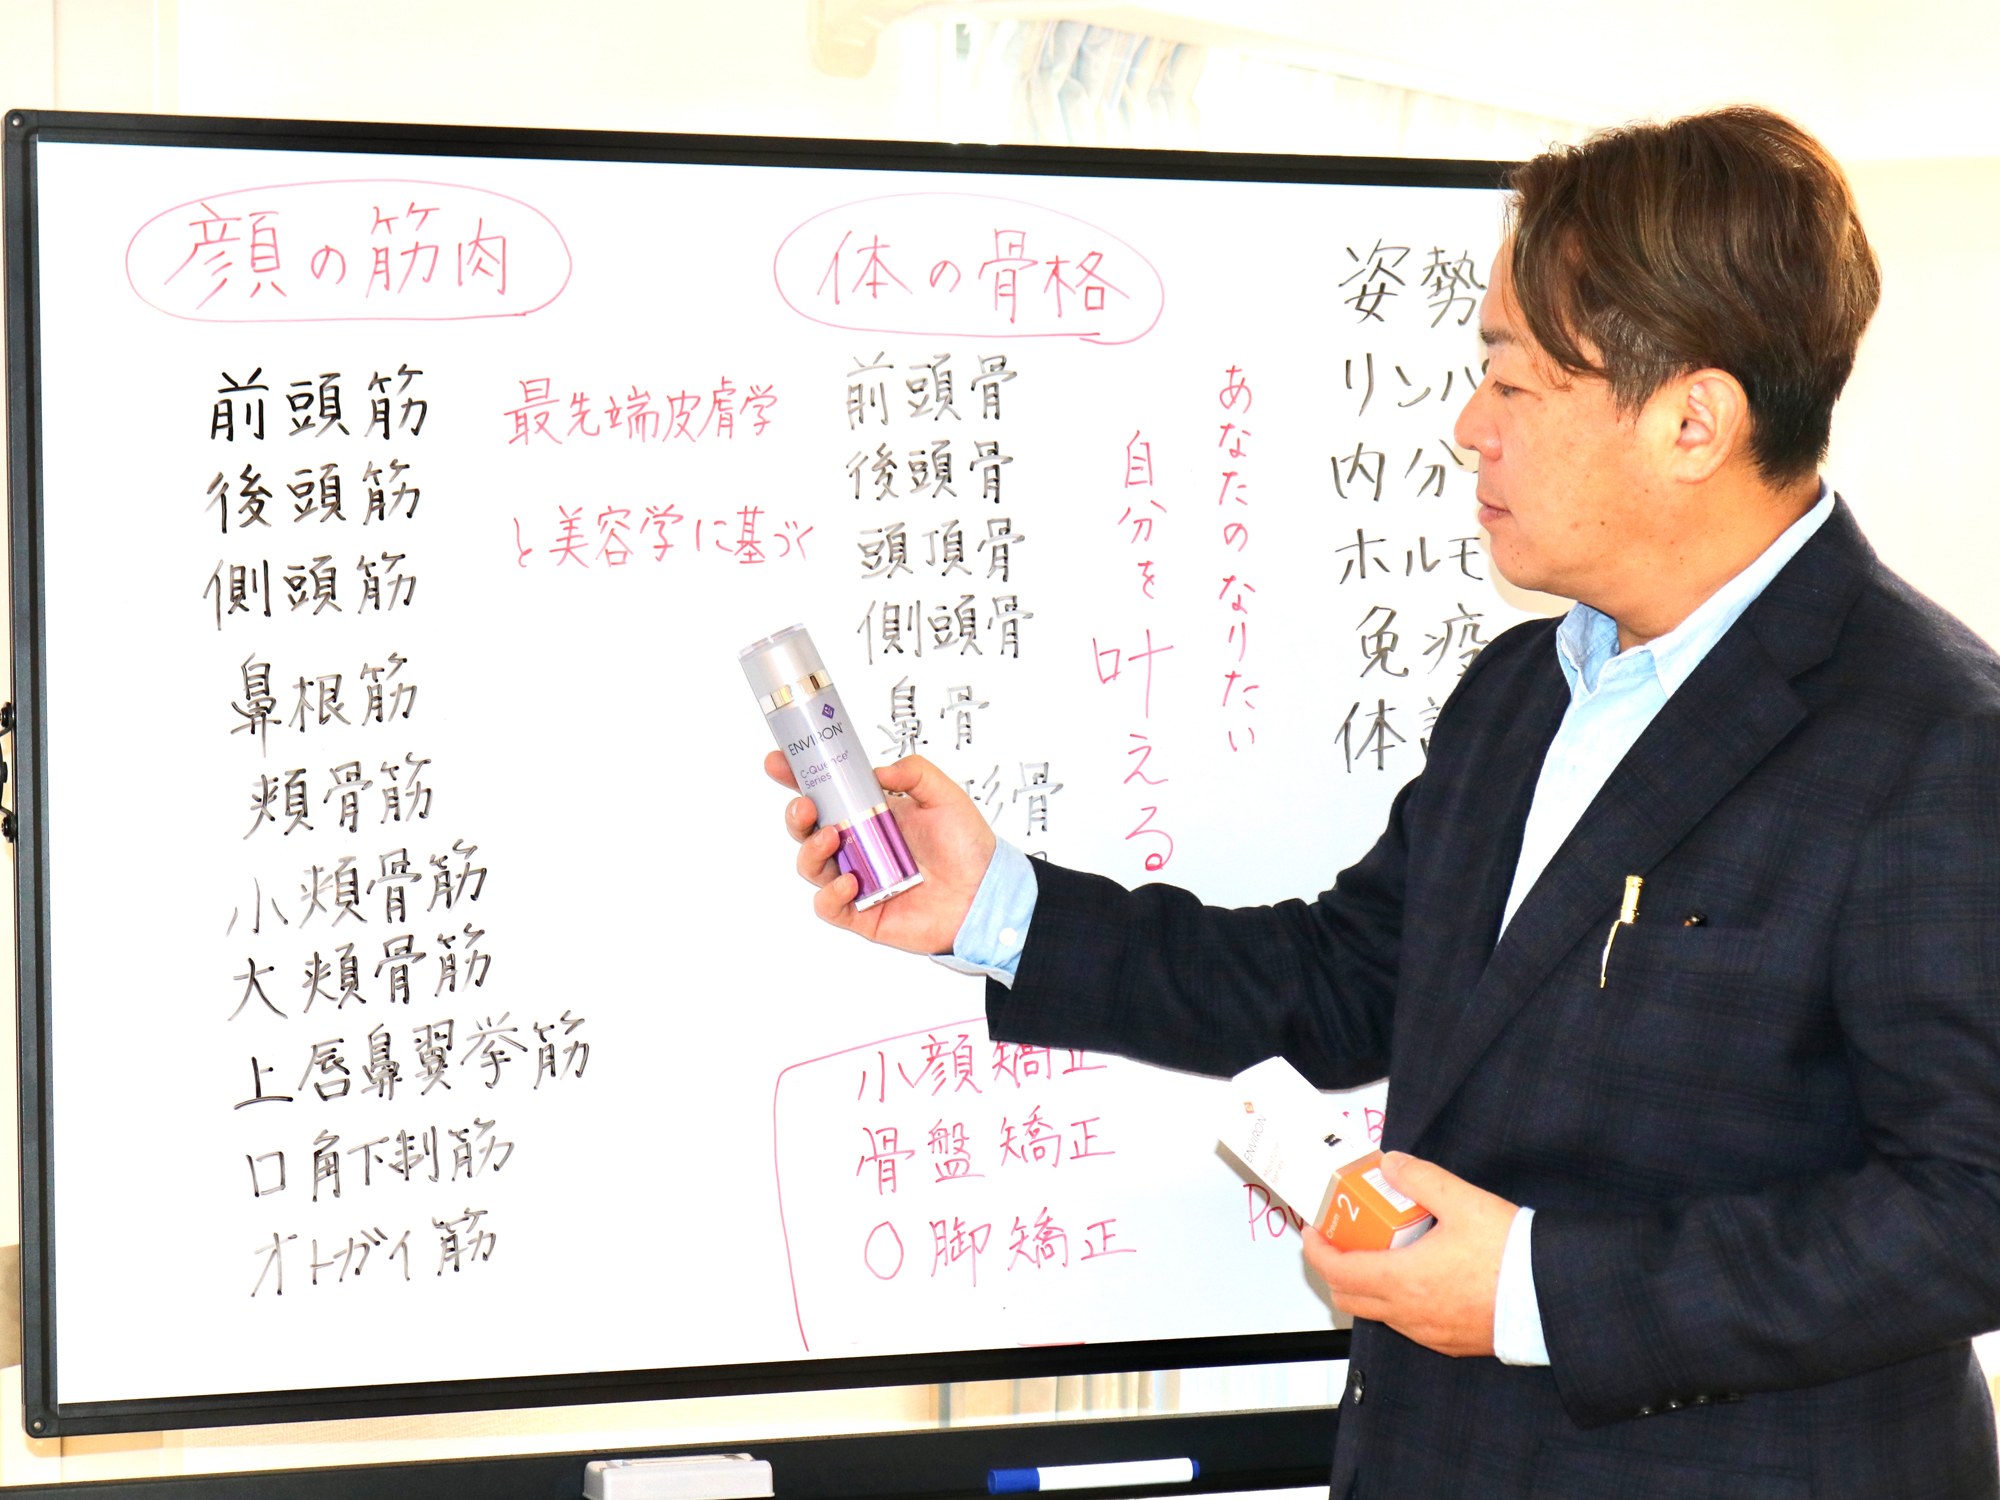 顔の筋肉
前頭筋
後頭筋
側頭筋
鼻根筋
頬骨筋
小頬骨筋
大頬骨筋
上唇鼻翼挙筋
口角下制筋
オトガイ筋
最先端皮膚学
と美容学に基づく
体の骨格
前頭骨
後頭骨
頭頂骨
側頭骨
鼻骨
形骨
自分を叶える
あなたのなりたい
小顔矯正
骨盤矯正
O脚矯正
姿勢
リンパ
内分
ホルモ
免疫
体
ENVIRON
C-Quence
Series
ENVIRON
Cream
2